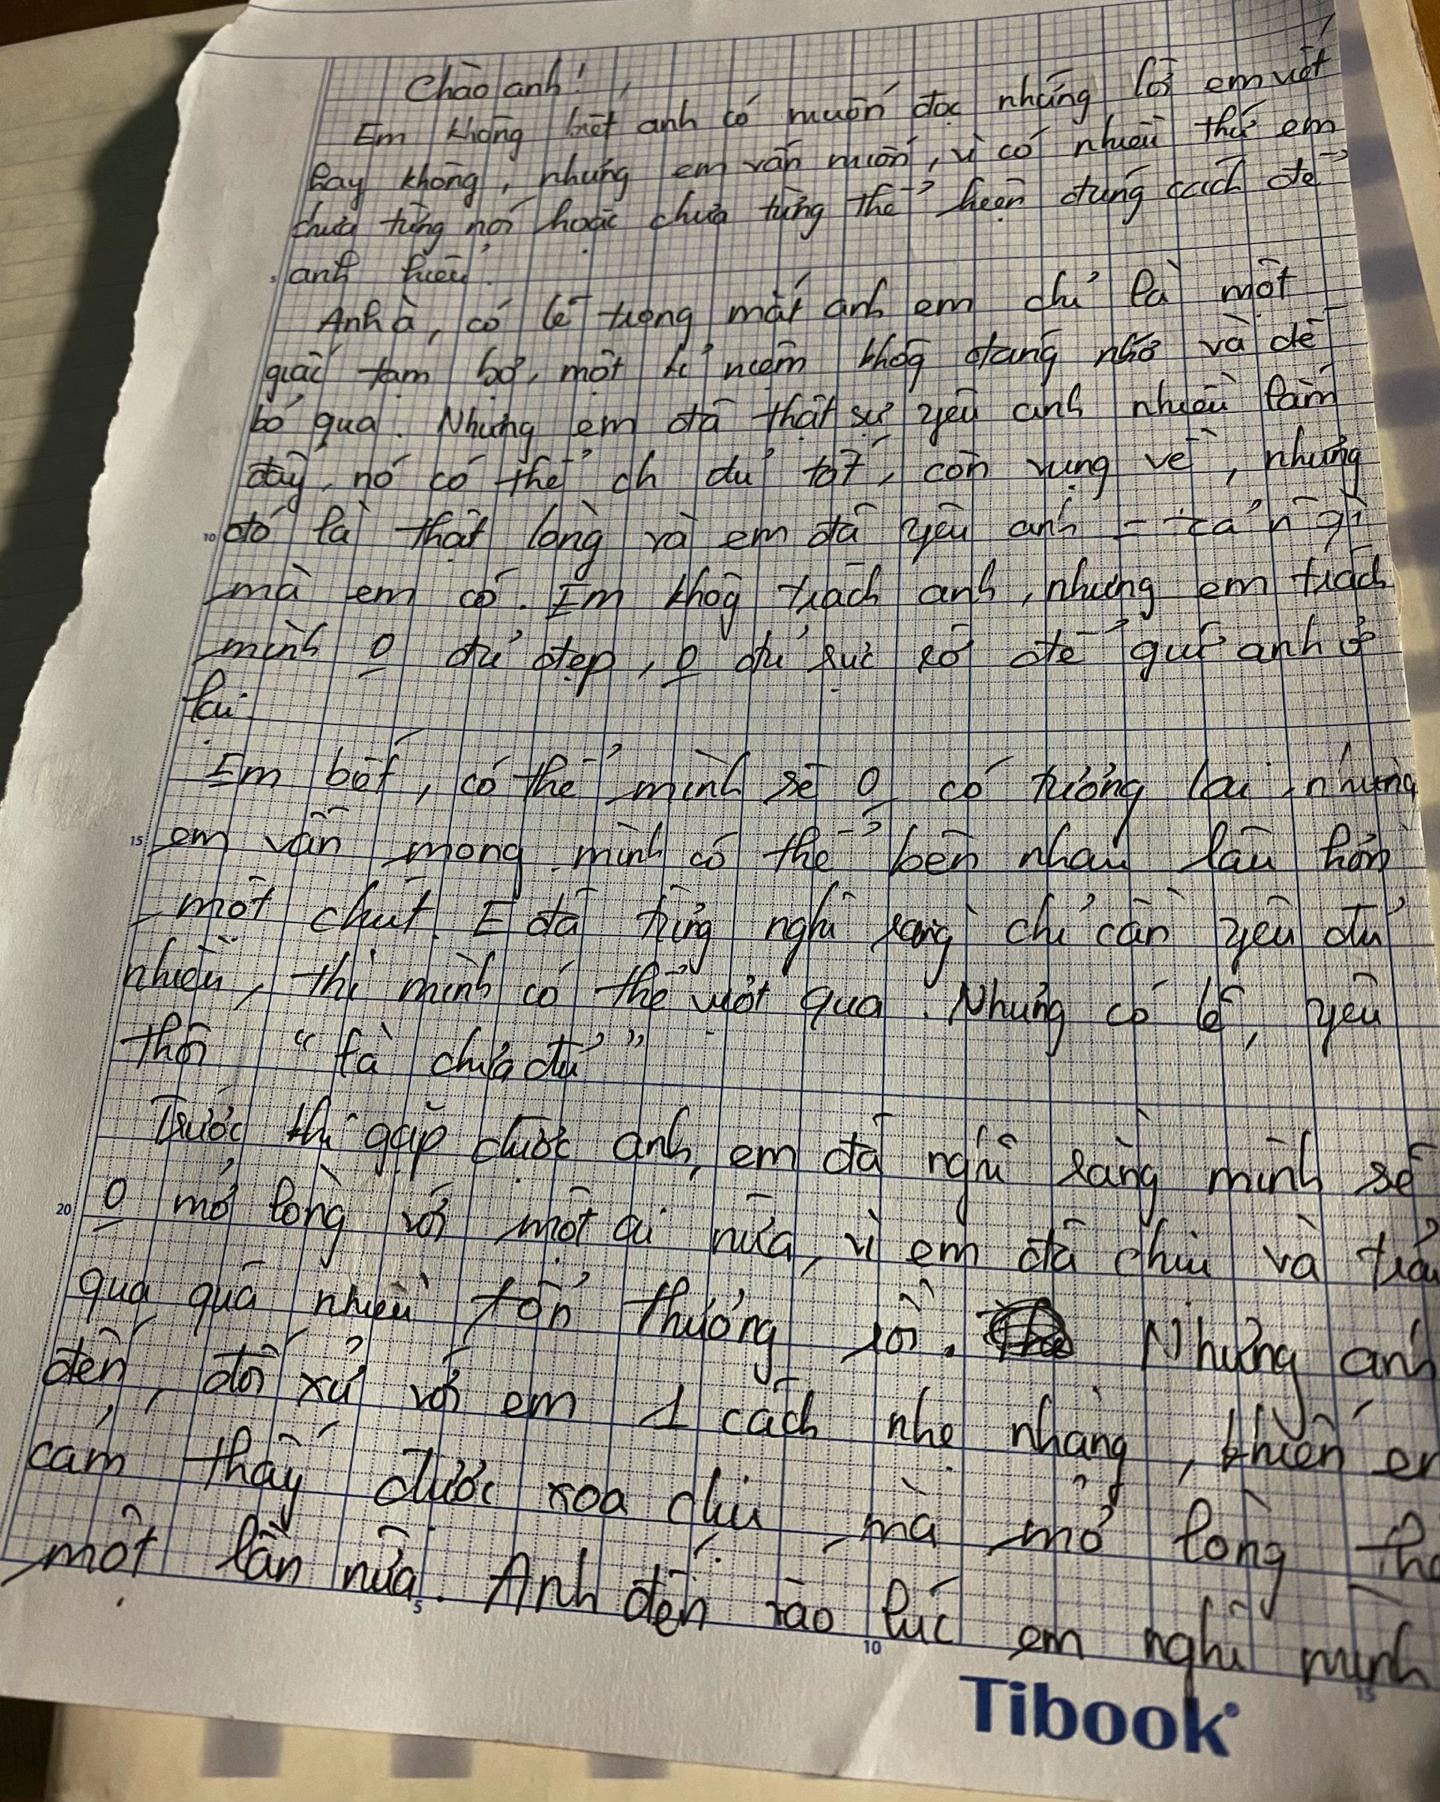 Chào anh!
Em không biết anh có muốn đọc những lời em viết
hay không, nhưng em vẫn muốn, vì có nhiều thứ em
chưa từng nói hoặc chưa từng thể hiện đúng cách để
anh hiểu.
Anh à, có lẽ trong mắt anh em chỉ là một
giấc tạm bợ, một kỉ niệm khôg đáng nhớ và dễ
bỏ qua. Nhưng em đã thật sự yêu anh nhiều lắm
đấy, nó có thể ch đủ tốt, còn vụng về, nhưng
10 đó là thật lòng và em đã yêu anh = tcả n~ gì
mà em có. Em khôg trách anh, nhưng em trách
mình o đủ đẹp, o đủ rực rỡ để giữ anh ở
lại.
Em biết, có thể mình sẽ o có tương lai nhưng
15 em vẫn mong mình có thể bên nhau lâu hơn
một chút. E đã từng nghĩ rằng chỉ cần yêu đủ
nhiều, thì mình có thể vượt qua. Nhưng có lẽ, yêu
thôi "là chưa đủ"
Trước khi gặp được anh, em đã nghĩ rằng mình sẽ
20 o mở lòng với một ai nữa, vì em đã chịu và trải
qua quá nhiều tổn thương rồi. Nhưng anh
đến, đối xử với em 1 cách nhẹ nhàng, khiến em
cảm thấy được xoa dịu mà mở lòng
một lần nữa. Anh đến vào lúc em nghĩ mình
5 10 15
Tibook